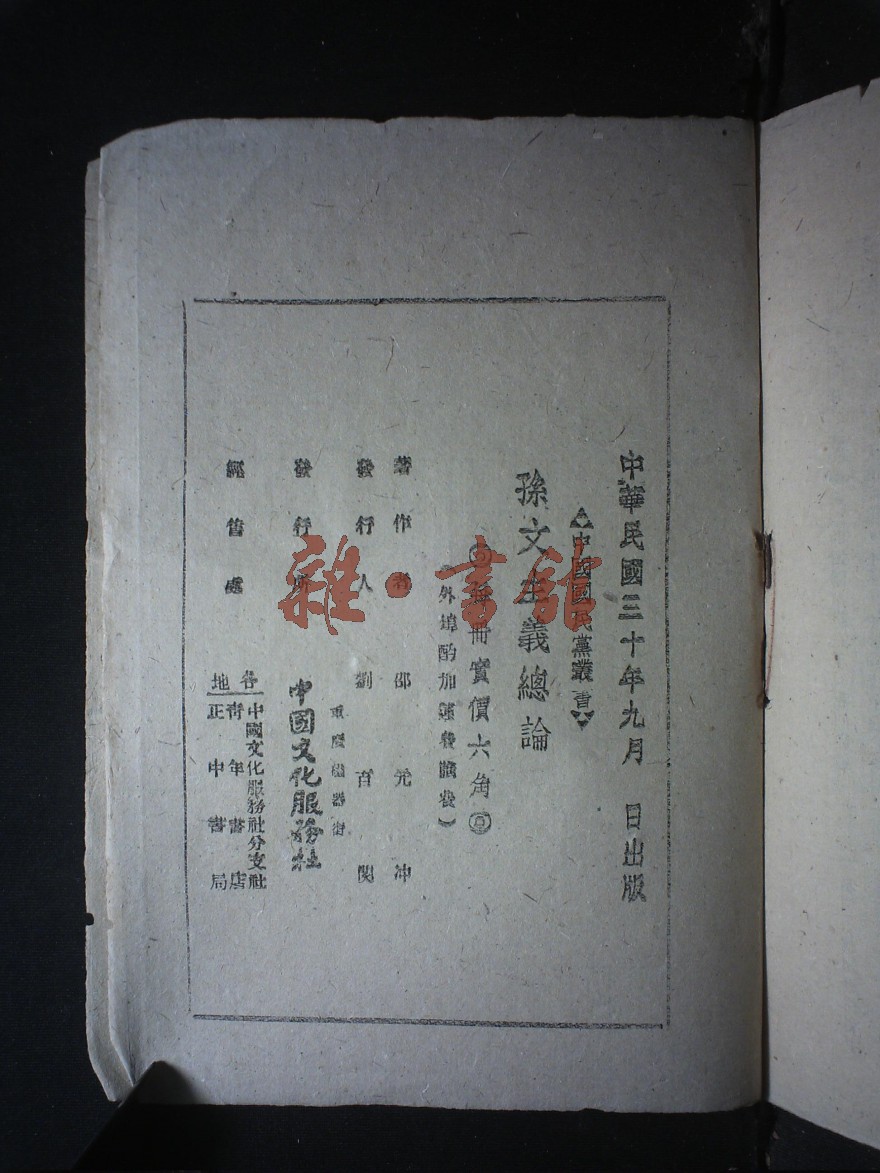 中華民國三十年九月 日出版
中國國民黨叢書
孫文主義總論
每冊實價六角
（外埠酌加運費滙費）
著作者 邵元冲
發行人 劉百閔
重慶磁器街
發行所 中國文化服務社
經售處
各地
中國文化服務社分支社
青年書店
正中書局
雜·書館